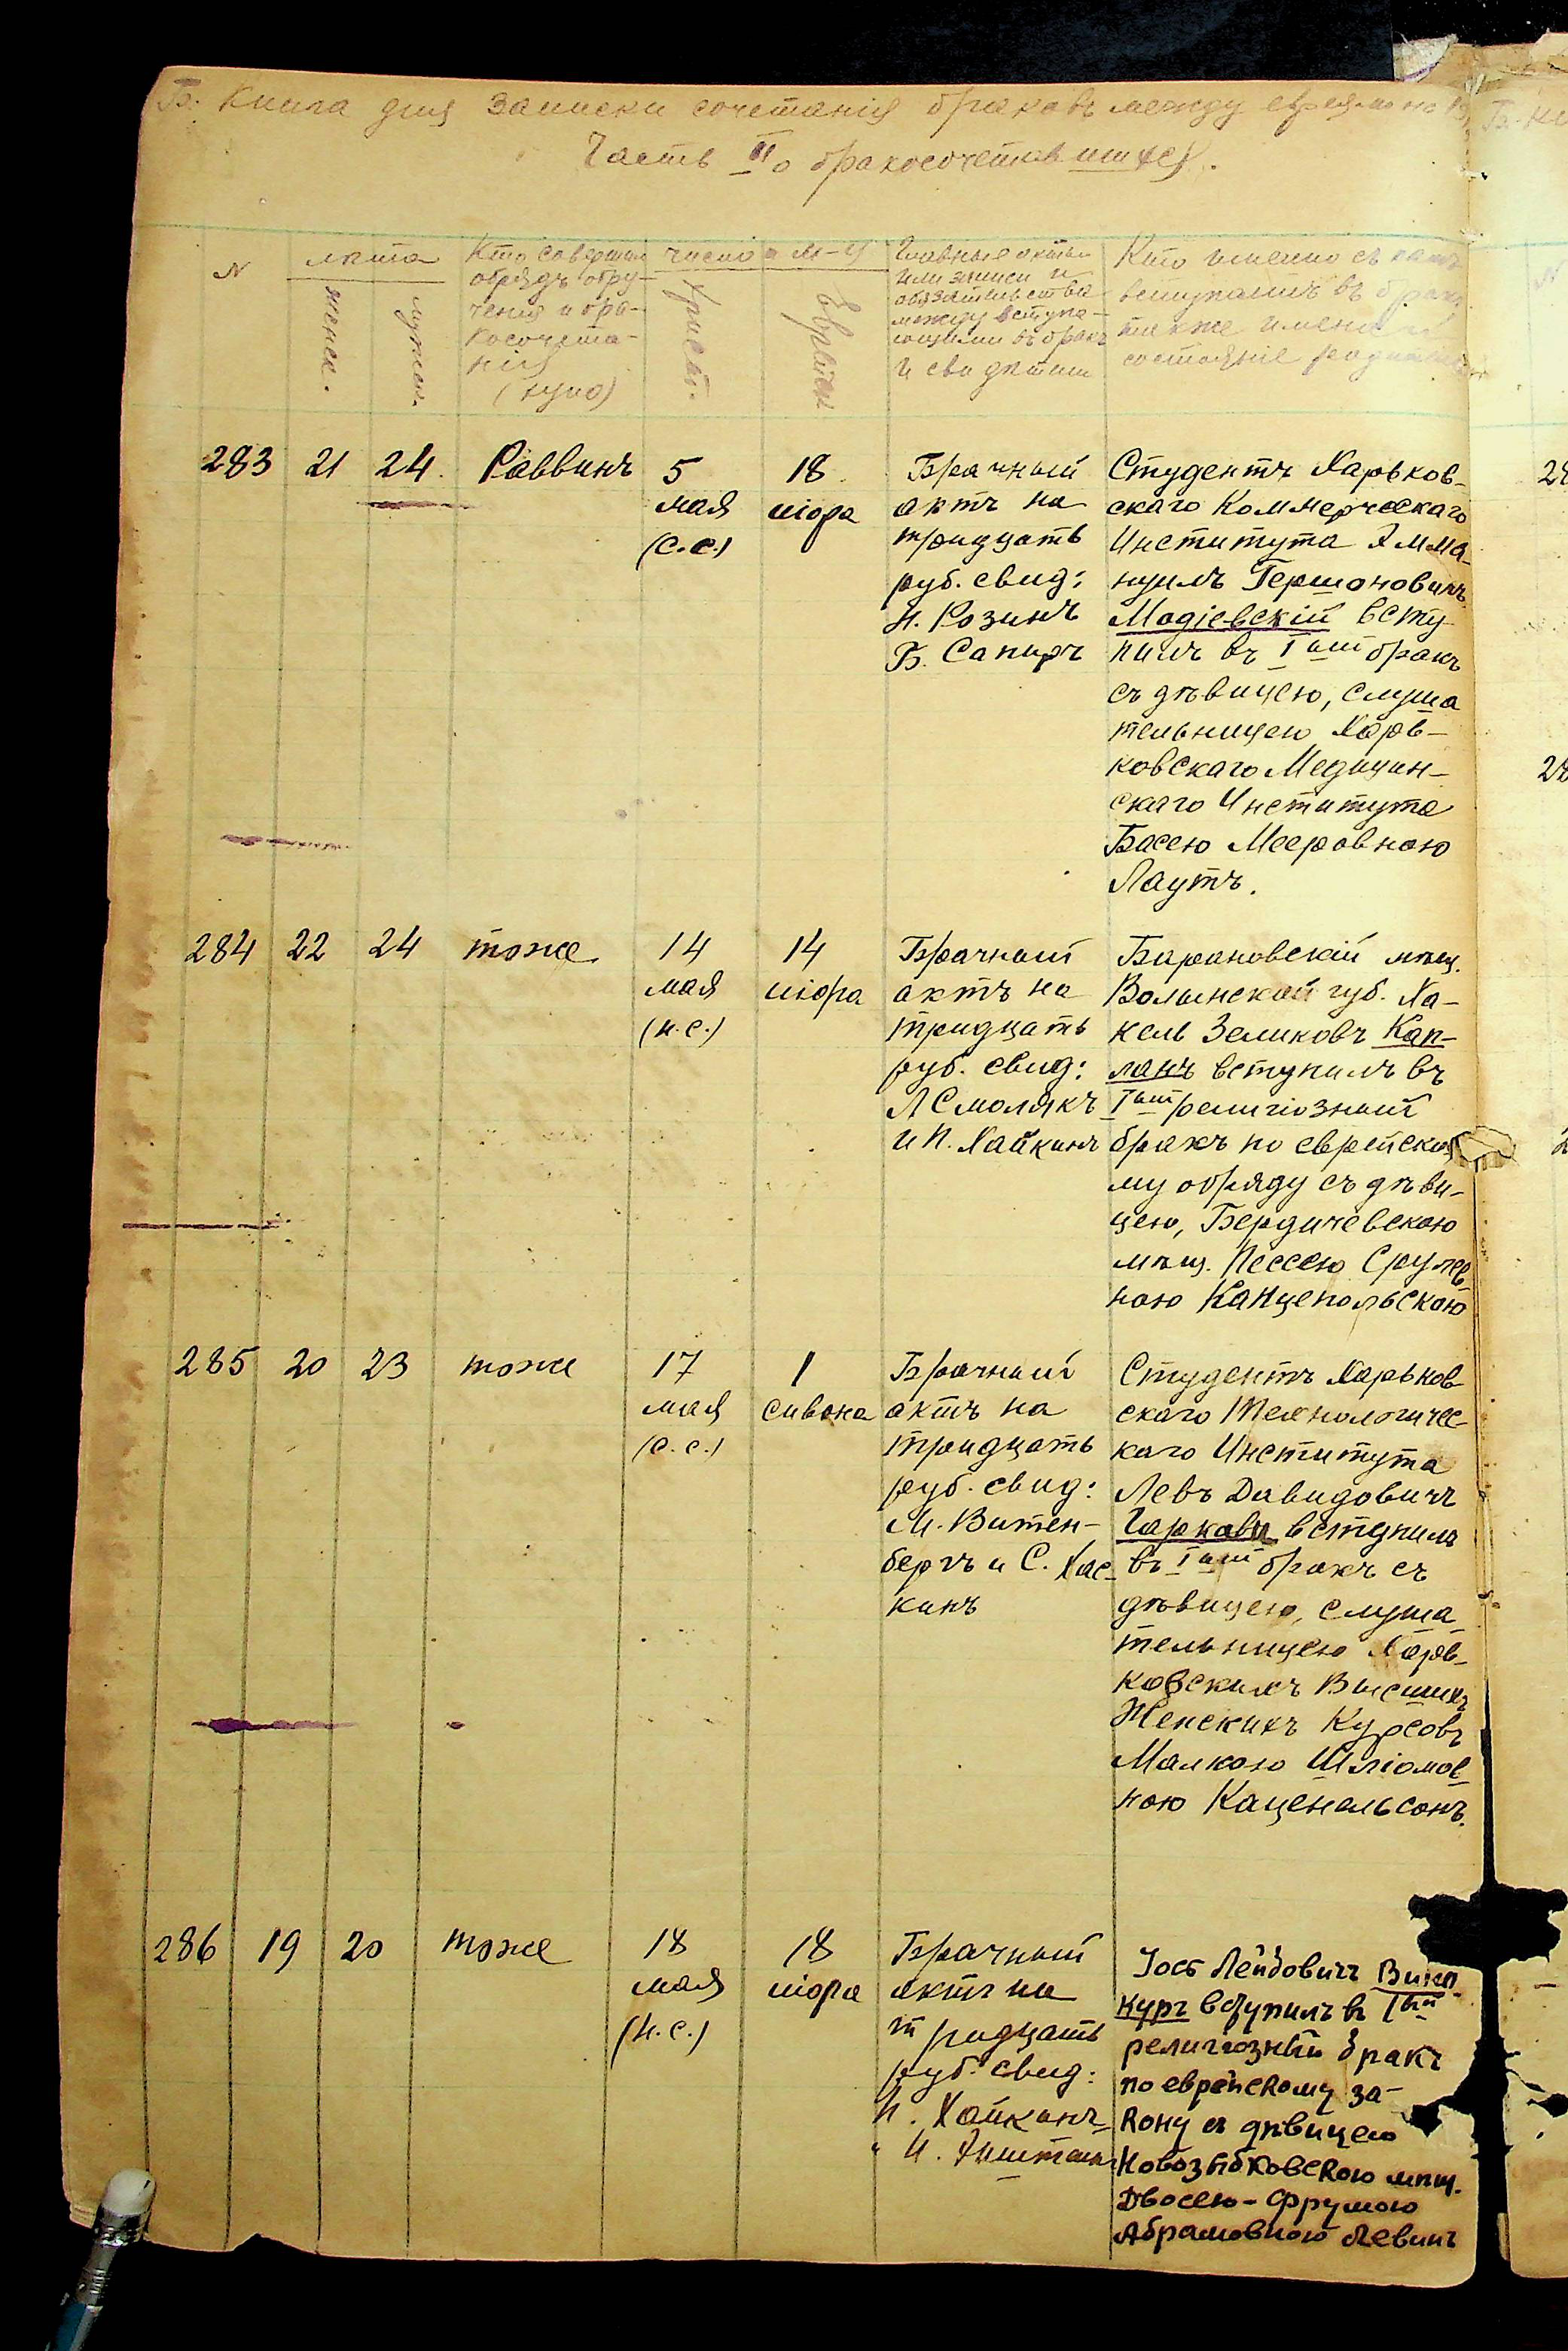 Б. Книга для записки сочетанія браковъ между евреями на
Часть II о бракосочетавшихся.
№
лѣта
женск.
мужск.
Кто совершал
обрядъ обру-
ченія и бра-
косочета-
нія
число и м-ц
Христ.
Еврейск
Главные акты
или записи и
обязательства
между вступа-
ющими въ бракъ
и свидѣтели
Кто именно съ кѣмъ
вступаетъ въ бракъ
также имена и
состояніе родителей
283 21 24. Раввинъ 5 18
мая іюра
(с.с.)
Брачный
актъ на
тридцать
руб. свид:
Н. Розинъ
Б. Сапиръ
Студентъ Харьков-
скаго Коммерческаго
Института Эмма-
нуилъ Гершоновичъ
Модіевскій всту-
пилъ въ Iый бракъ
съ дѣвицею, слуша
тельницею Харь-
ковскаго Медицин-
скаго Института
Басею Мееровною
Лаутъ.
284 22 24 тоже 14 14
мая іюра
(н.с.)
Брачный
актъ на
тридцать
руб. свид:
Л Смолякъ
и П. Хайкинъ
Барановскій мѣщ.
Волынской губ. Ха-
кель Зеликовъ Кап-
ланъ вступилъ въ
Iый религіозный
бракъ по еврейско
му обряду съ дѣви-
цею, Бердичевскою
мѣщ. Пессею Срулев-
ною Канцепольскою
285 20 23 тоже 17 1
мая сивона
(с.с.)
Брачный
актъ на
тридцать
руб. свид:
М. Витен-
бергъ и С. Хас-
кинъ
Студентъ Харьков
скаго Технологичес-
каго Института
Левъ Давидовичъ
Гаркави вступилъ
въ Iый бракъ съ
дѣвицею, слуша
тельницею Харь-
ковскихъ Высшихъ
Женскихъ Курсовъ
Малкою Шліомов-
ною Каценельсонъ.
286 19 20 тоже 18 18
мая іюра
(н.с.)
Брачный
актъ на
тридцать
руб. свид:
Н. Хайкинъ
и И.
Іосѣ Лейбовичъ Вино-
куръ вступилъ въ Iый
религіозный бракъ
по еврейскому за-
кону съ дѣвицею
Новозыбковскою мѣщ.
Двосею-Фрумою
Абрамовною Левинъ